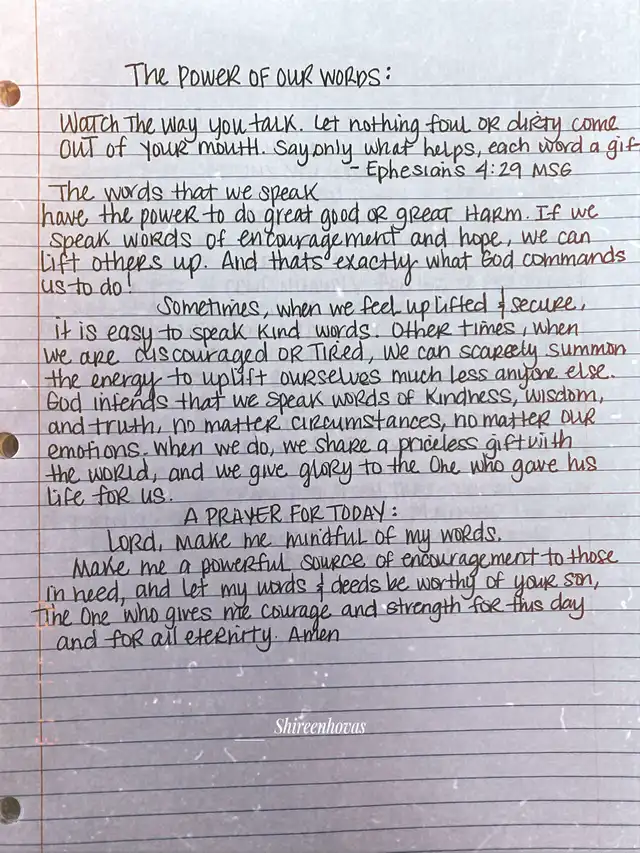 The Power of our words:
Watch the way you talk. Let nothing foul or dirty come
out of your mouth. Say only what helps, each word a gif
- Ephesians 4:29 MSG
The words that we speak
have the power to do great good or great harm. If we
speak words of encouragement and hope, we can
lift others up. And thats exactly what God commands
us to do!
Sometimes, when we feel uplifted & secure,
it is easy to speak kind words. Other times, when
we are discouraged or tired, we can scarcely summon
the energy to uplift ourselves much less anyone else.
God intends that we speak words of kindness, wisdom,
and truth, no matter circumstances, no matter our
emotions. When we do, we share a priceless gift with
the world, and we give glory to the One who gave his
life for us.
A PRAYER FOR TODAY:
Lord, make me mindful of my words.
Make me a powerful source of encouragement to those
in need, and let my words & deeds be worthy of your son,
The One who gives me courage and strength for this day
and for all eternity. Amen
Shireenhovas